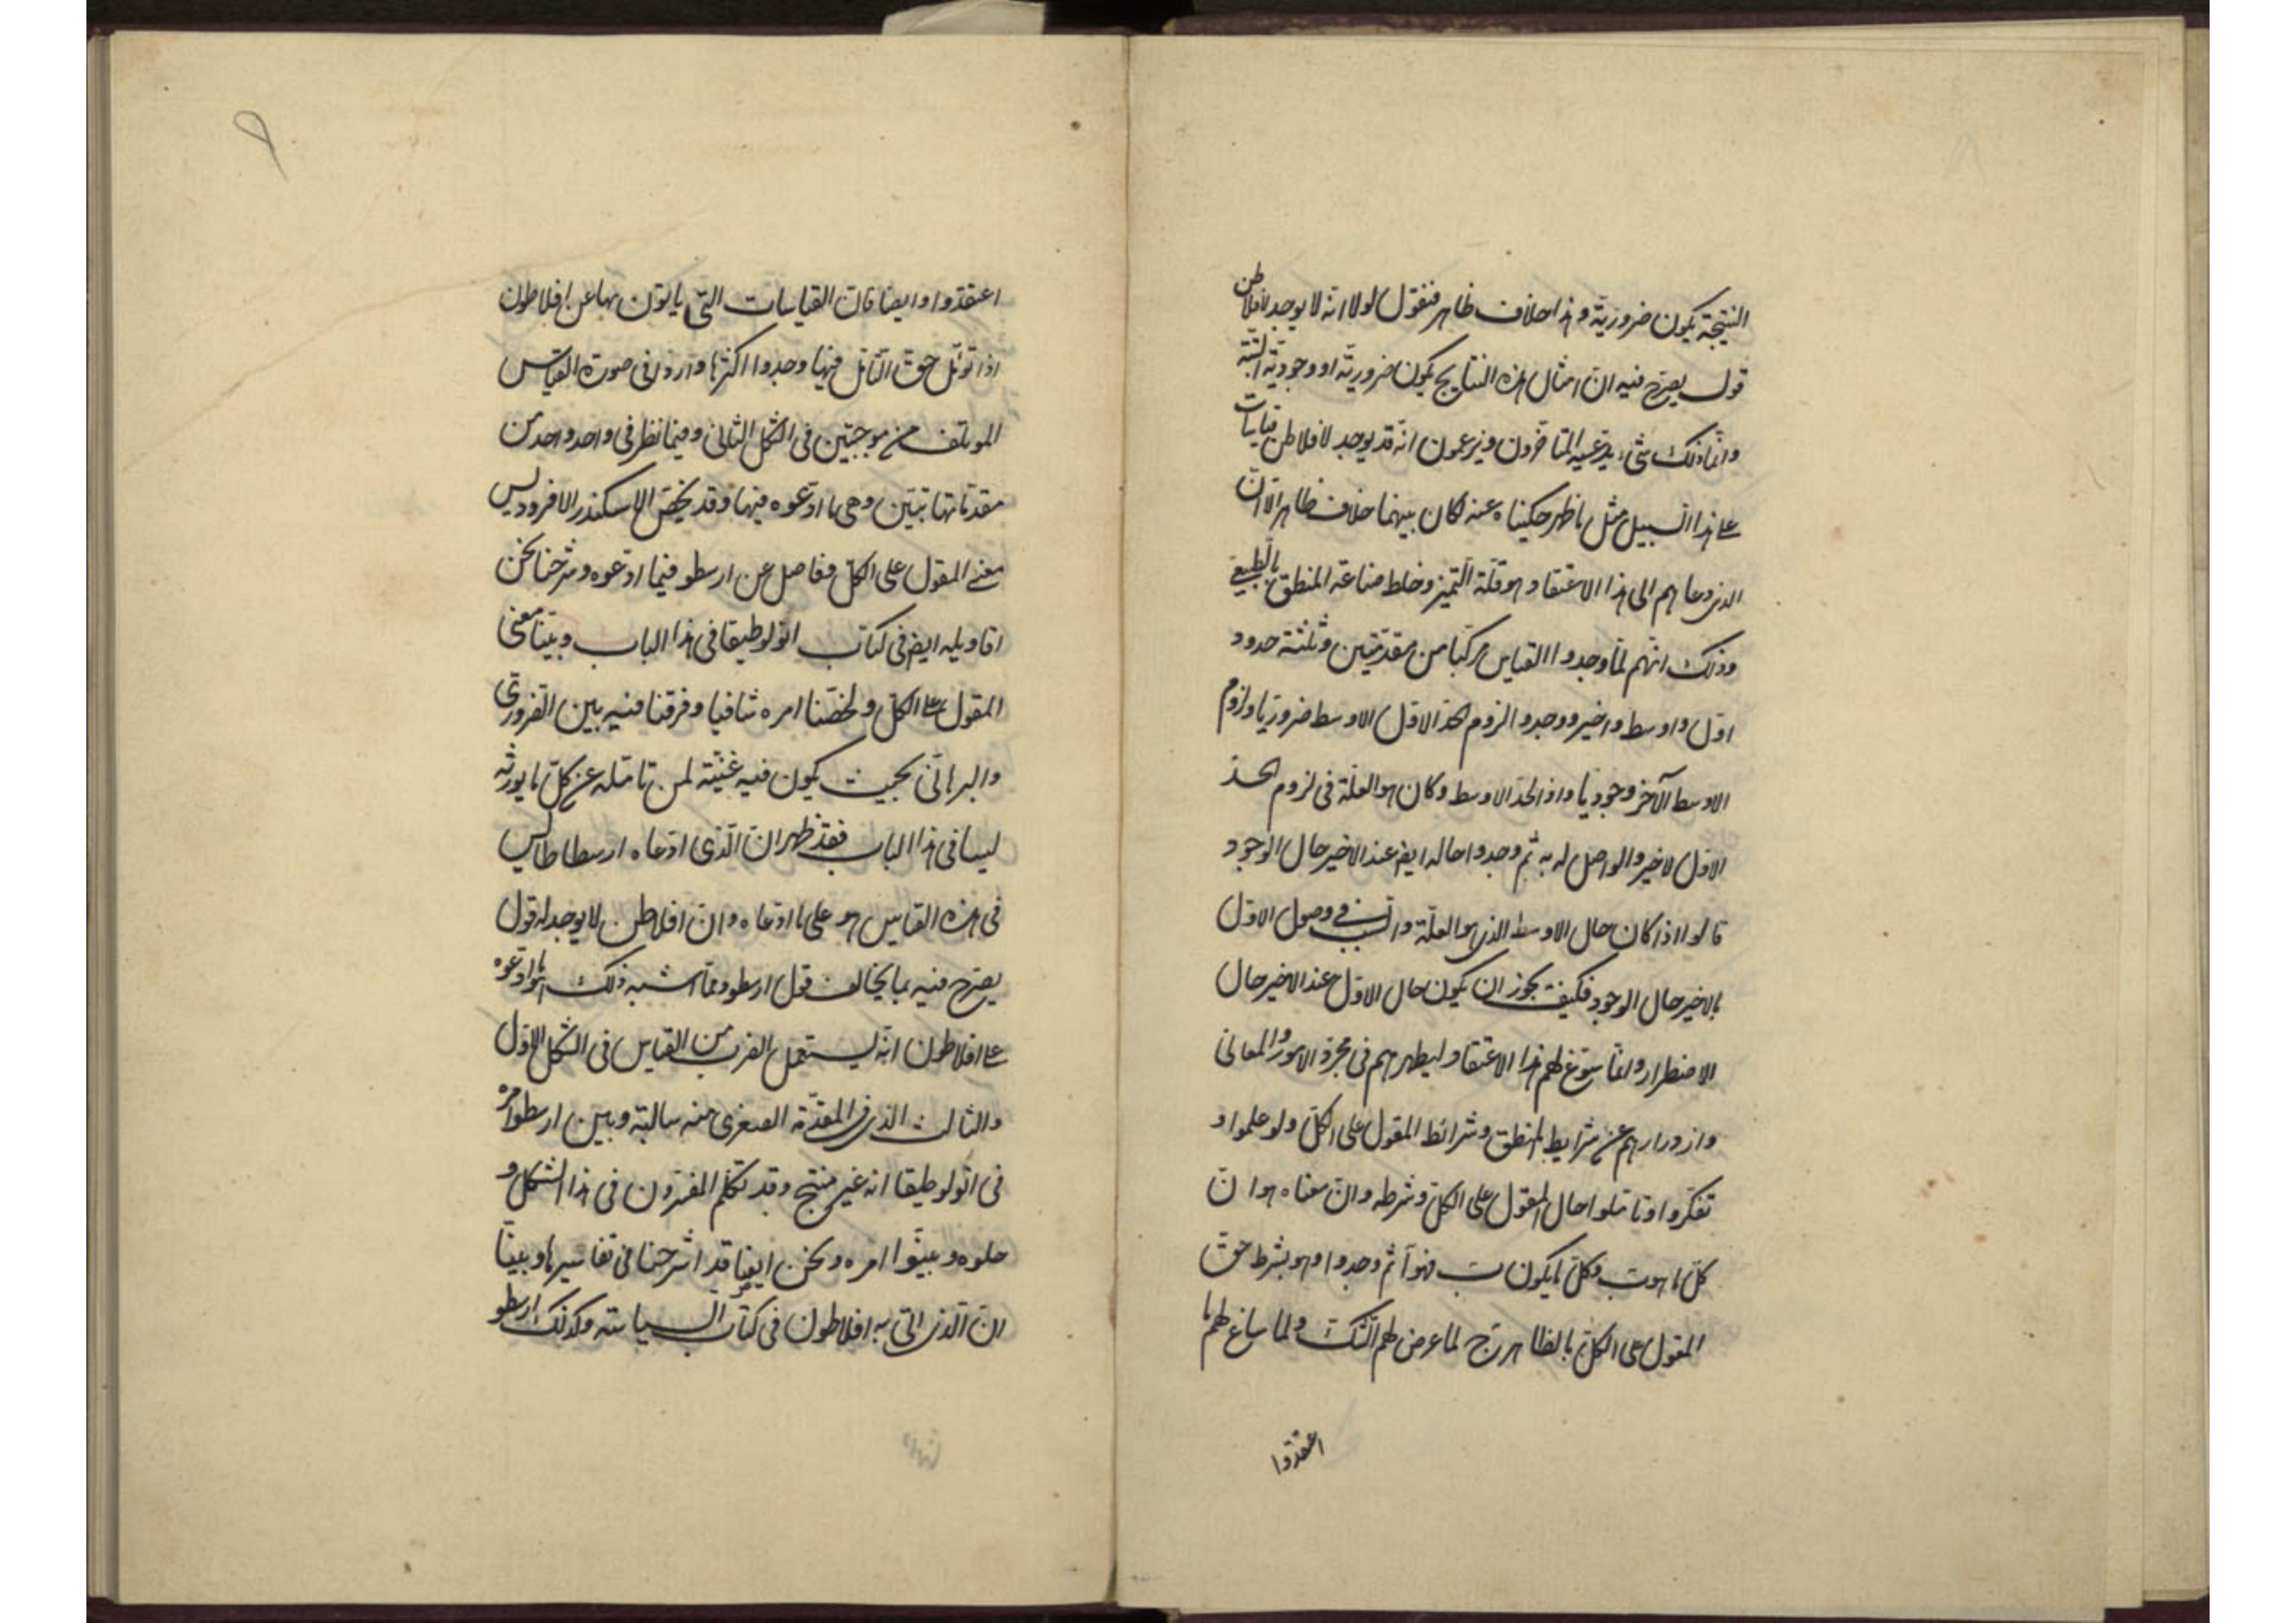 النتيجة يكون ضرورية وهذا خلاف ظاهر فنقول لولا انه لا يوجد لافلاطن
قول يصرح فيه ان امثال هذه النتايج يكون ضرورية او وجودية البتة
وانما ذلك شيء يدعيه المتاخرون ويزعمون انه قد يوجد لافلاطن قياسات
على هذا السبيل مثل ما ظهر حكيناه عنه لكان بينهما خلاف ظاهر الا ان
الذى دعاهم الى هذا الاعتقاد هو قلة التميز وخلط صناعة المنطق بالطبيعى
وذلك انهم لما وجدوا القياس مركبا من مقدمتين وثلثة حدود
اول واوسط واخير ووجدوا لزوم الحد الاول الاوسط ضروريا ولزوم
الاوسط الآخر وجوديا واذ الحد الاوسط وكان هو العلة فى لزوم الحد
الاول لاخير والواصل له به ثم وجدوا حاله ايض عند الاخير حال الوجود
قالوا اذا كان حال الاوسط الذى هو العلة والسبب فى وصول الاول
بالاخير حال الوجود فكيف يجوز ان يكون حال الاول عند الاخير حال
الاضطرار وانما سوغ لهم هذا الاعتقاد لنظرهم فى مجرد الامور والمعانى
وازورارهم عن شرايط المنطق وشرائط المقول على الكل ولو علموا او
تفكروا او تاملوا حال المقول على الكل وشرطه وان معناه هو ان
كل ما هو ب وكل ما يكون ب فهو آ ثم وجدوا وهو بشرط حق
المقول على الكل بالظاهر ج لما عرض لهم الشك ولما ساغ لهم ما
اعتقدوا
٩
اعتقدوا وايضا فان القياسات التى ياتون بها عن افلاطون
اذا تؤمل حق التامل فيها وجدوا اكثرها وارد فى صورة القياس
المؤتلف من موجبتين فى الشكل الثانى ومتما نظر فى واحد واحد من
مقدماتها تبين وهى ما ادعوه فيها وقد يلخص الاسكندر الافروديس
معنى المقول على الكل وفاصل عن ارسطو فيما ادعوه وشرحنا نحن
اقاويله ايض فى كتاب انولوطيقا فى هذا الباب وبينا معنى
المقول على الكل ولخصنا امره شافيا وفرقنا فيه بين الضرورى
والبرهانى بحيث يكون فيه غنية لمن تامله عن كل ما يورثه
لبسا فى هذا الباب فقد ظهر ان الذى ادعاه ارسطاطاليس
فى هذه القياس هو على ما ادعاه وان افلاطن لا يوجد له قول
يصرح فيه بما يخالف قول ارسطو ومما اشبه ذلك هو ما ادعوه
على افلاطون انه يستعمل الضرب من القياس فى الشكل الاول
والثالث الذى المقدمة الصغرى منه سالبة وبين ارسطو امره
فى انولوطيقا انه غير منتج وقد تكلم المفسرون فى هذا الشكل و
حلوه وبينوا امره ونحن ايضا قد اشرحنا فى تفاسيرها وبينا
ان الذى اتى به افلاطون فى كتاب السياسة وكذلك ارسطو